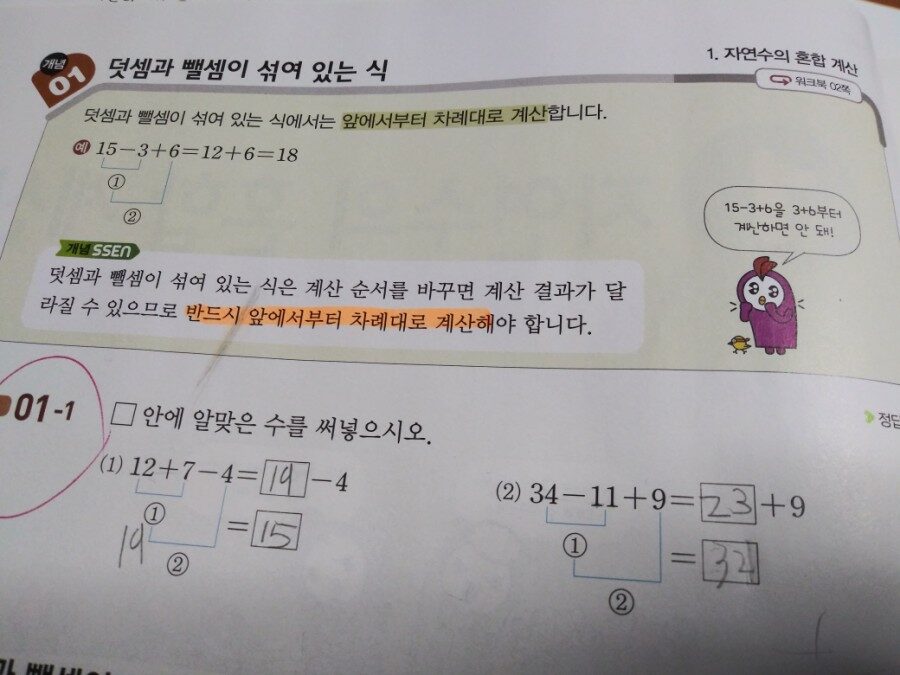 개념 01 덧셈과 뺄셈이 섞여 있는 식
1. 자연수의 혼합 계산
워크북 02쪽
덧셈과 뺄셈이 섞여 있는 식에서는 앞에서부터 차례대로 계산합니다.
예 15-3+6=12+6=18
①
②
15-3+6을 3+6부터
계산하면 안 돼!
개념 SSEN
덧셈과 뺄셈이 섞여 있는 식은 계산 순서를 바꾸면 계산 결과가 달
라질 수 있으므로 반드시 앞에서부터 차례대로 계산해야 합니다.
01-1 □ 안에 알맞은 수를 써넣으시오.
정답
(1) 12+7-4=19-4
①
19
=15
②
(2) 34-11+9=23+9
①
=32
②